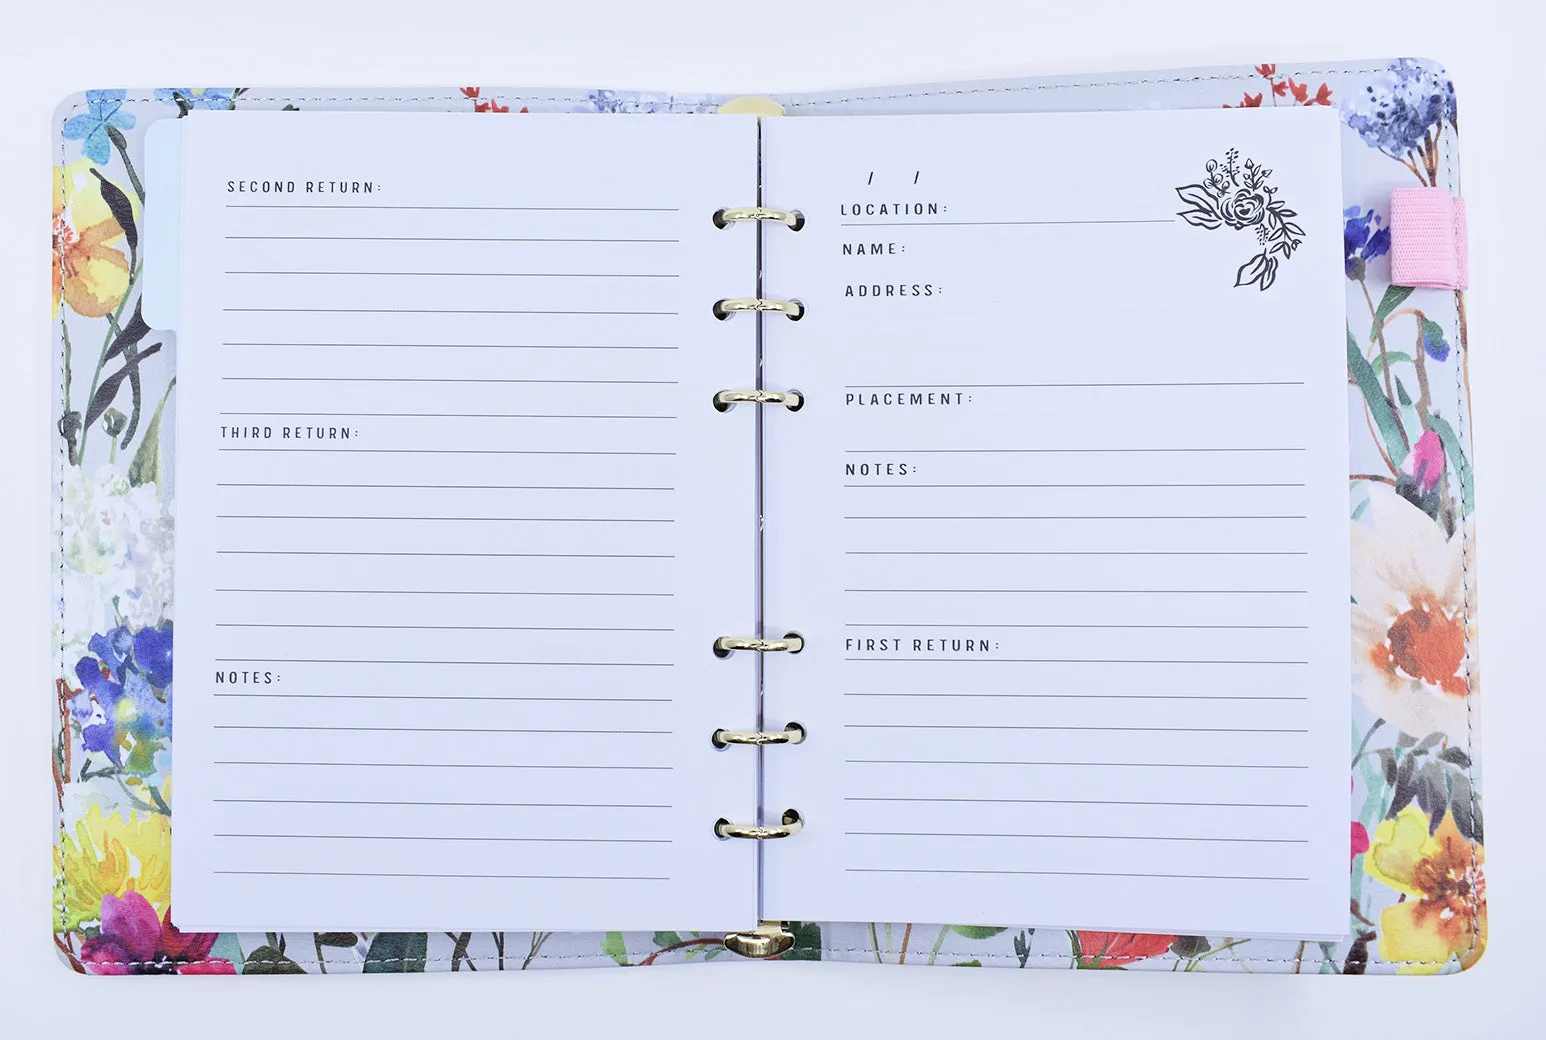 SECOND RETURN:
THIRD RETURN:
NOTES:
/ /
LOCATION:
NAME:
ADDRESS:
PLACEMENT:
NOTES:
FIRST RETURN: